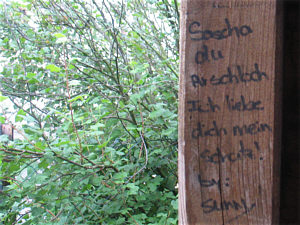 Sascha
du
Arschloch
Ich liebe
dich mein
schatz!
by:
Sunny